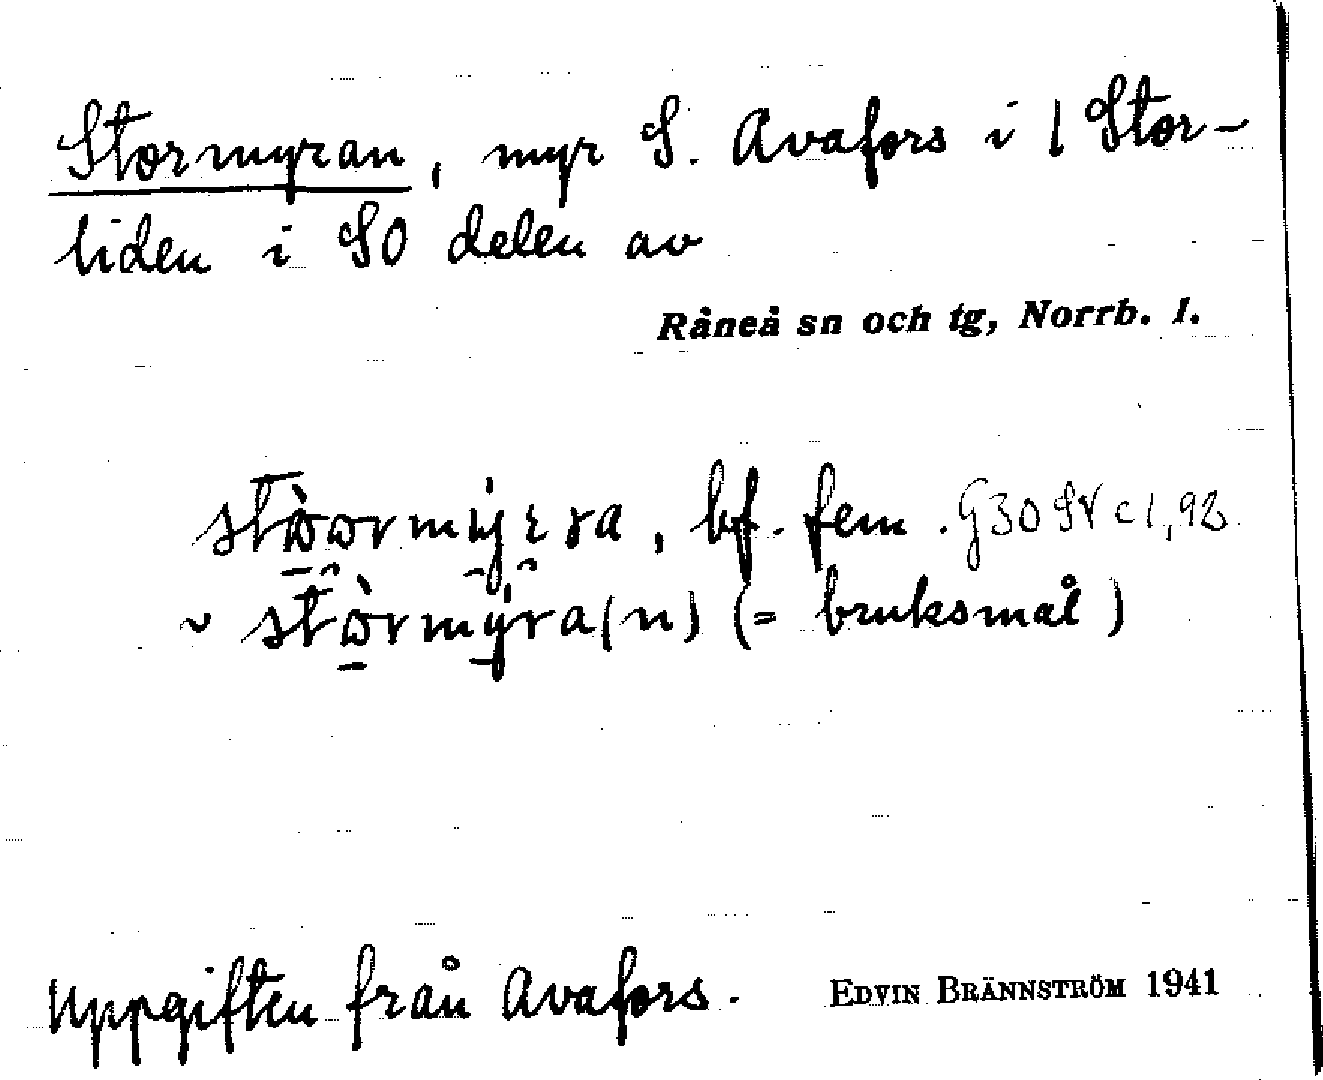 Stormyran, myr S. Avafors i / Stor-
liden i SO delen av
Råneå sn och tg, Norrb. l.
bf. fem. G30 SV c1,92
(= bruksmål)
Uppgiften från Avafors.
EDVIN BRÄNNSTRÖM 1941